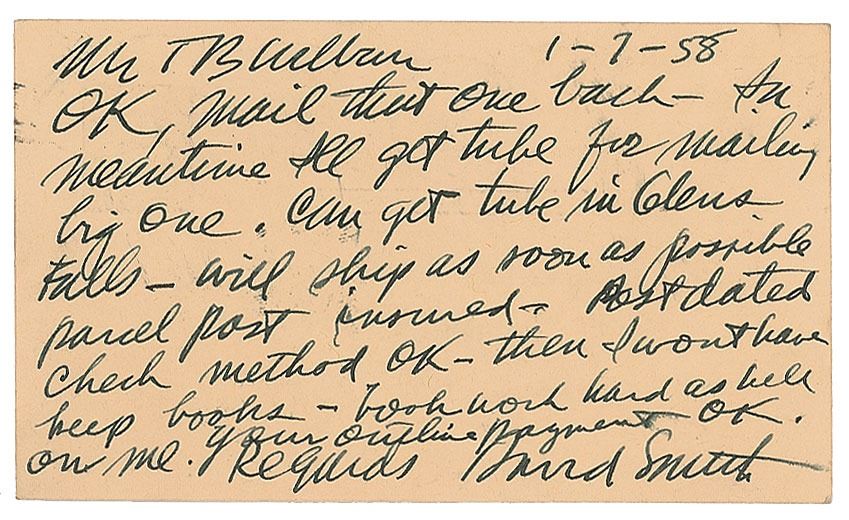 Mr T B 1-7-58
OK, mail that one back – In
meantime I'll get tube for mailing
big one. Can get tube in Glens
Falls – will ship as soon as possible
parcel post insured – Postdated
check method OK – then I wont have
keep books – book work hard as hell
on me. Your outline payment OK.
Regards David Smith